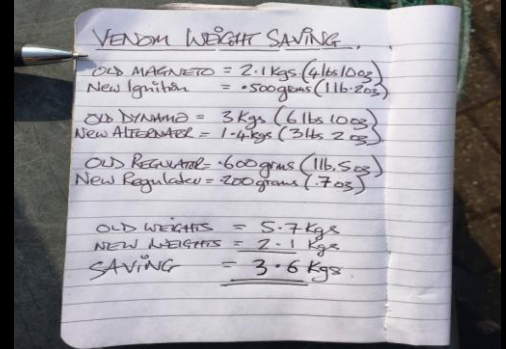 VENOM WEIGHT SAVING.
OLD MAGNETO = 2.1Kgs (4lbs 10oz)
New Ignition = .500grams (1lb.2oz)
OLD DYNAMO = 3Kgs (6lbs 10oz)
New ALTERNATOR = 1.4kgs (3lbs 2oz)
OLD REGULATOR = .600grms (1lb.5oz)
New Regulator = .200grams (.7oz)
OLD WEIGHTS = 5.7Kgs
NEW WEIGHTS = 2.1 Kgs
SAVING = 3.6 Kgs